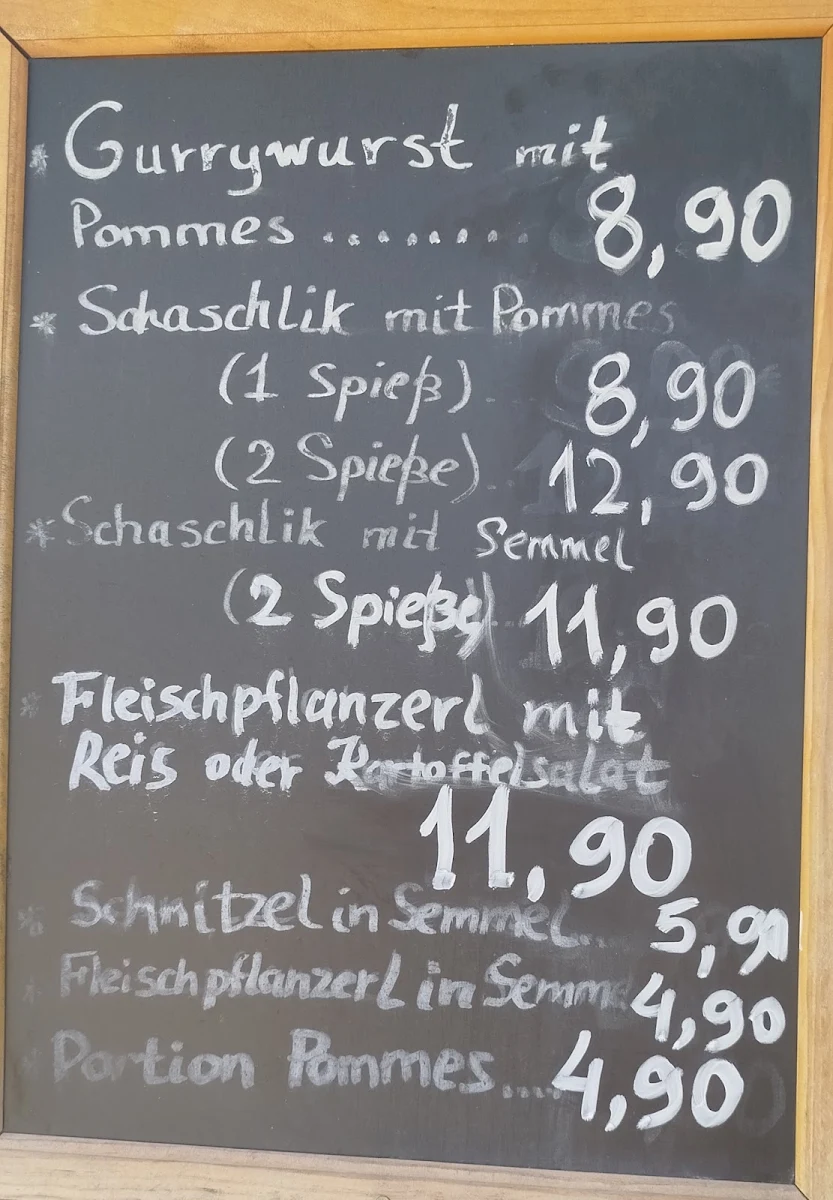 * Currywurst mit
Pommes ........ 8,90
* Schaschlik mit Pommes
(1 Spieß). 8,90
(2 Spieße).. 12,90
* Schaschlik mit Semmel
(2 Spieße).. 11,90
* Fleischpflanzerl mit
Reis oder Kartoffelsalat
11,90
* Schnitzel in Semmel... 5,90
* Fleischpflanzerl in Semme 4,90
* Portion Pommes.... 4,90